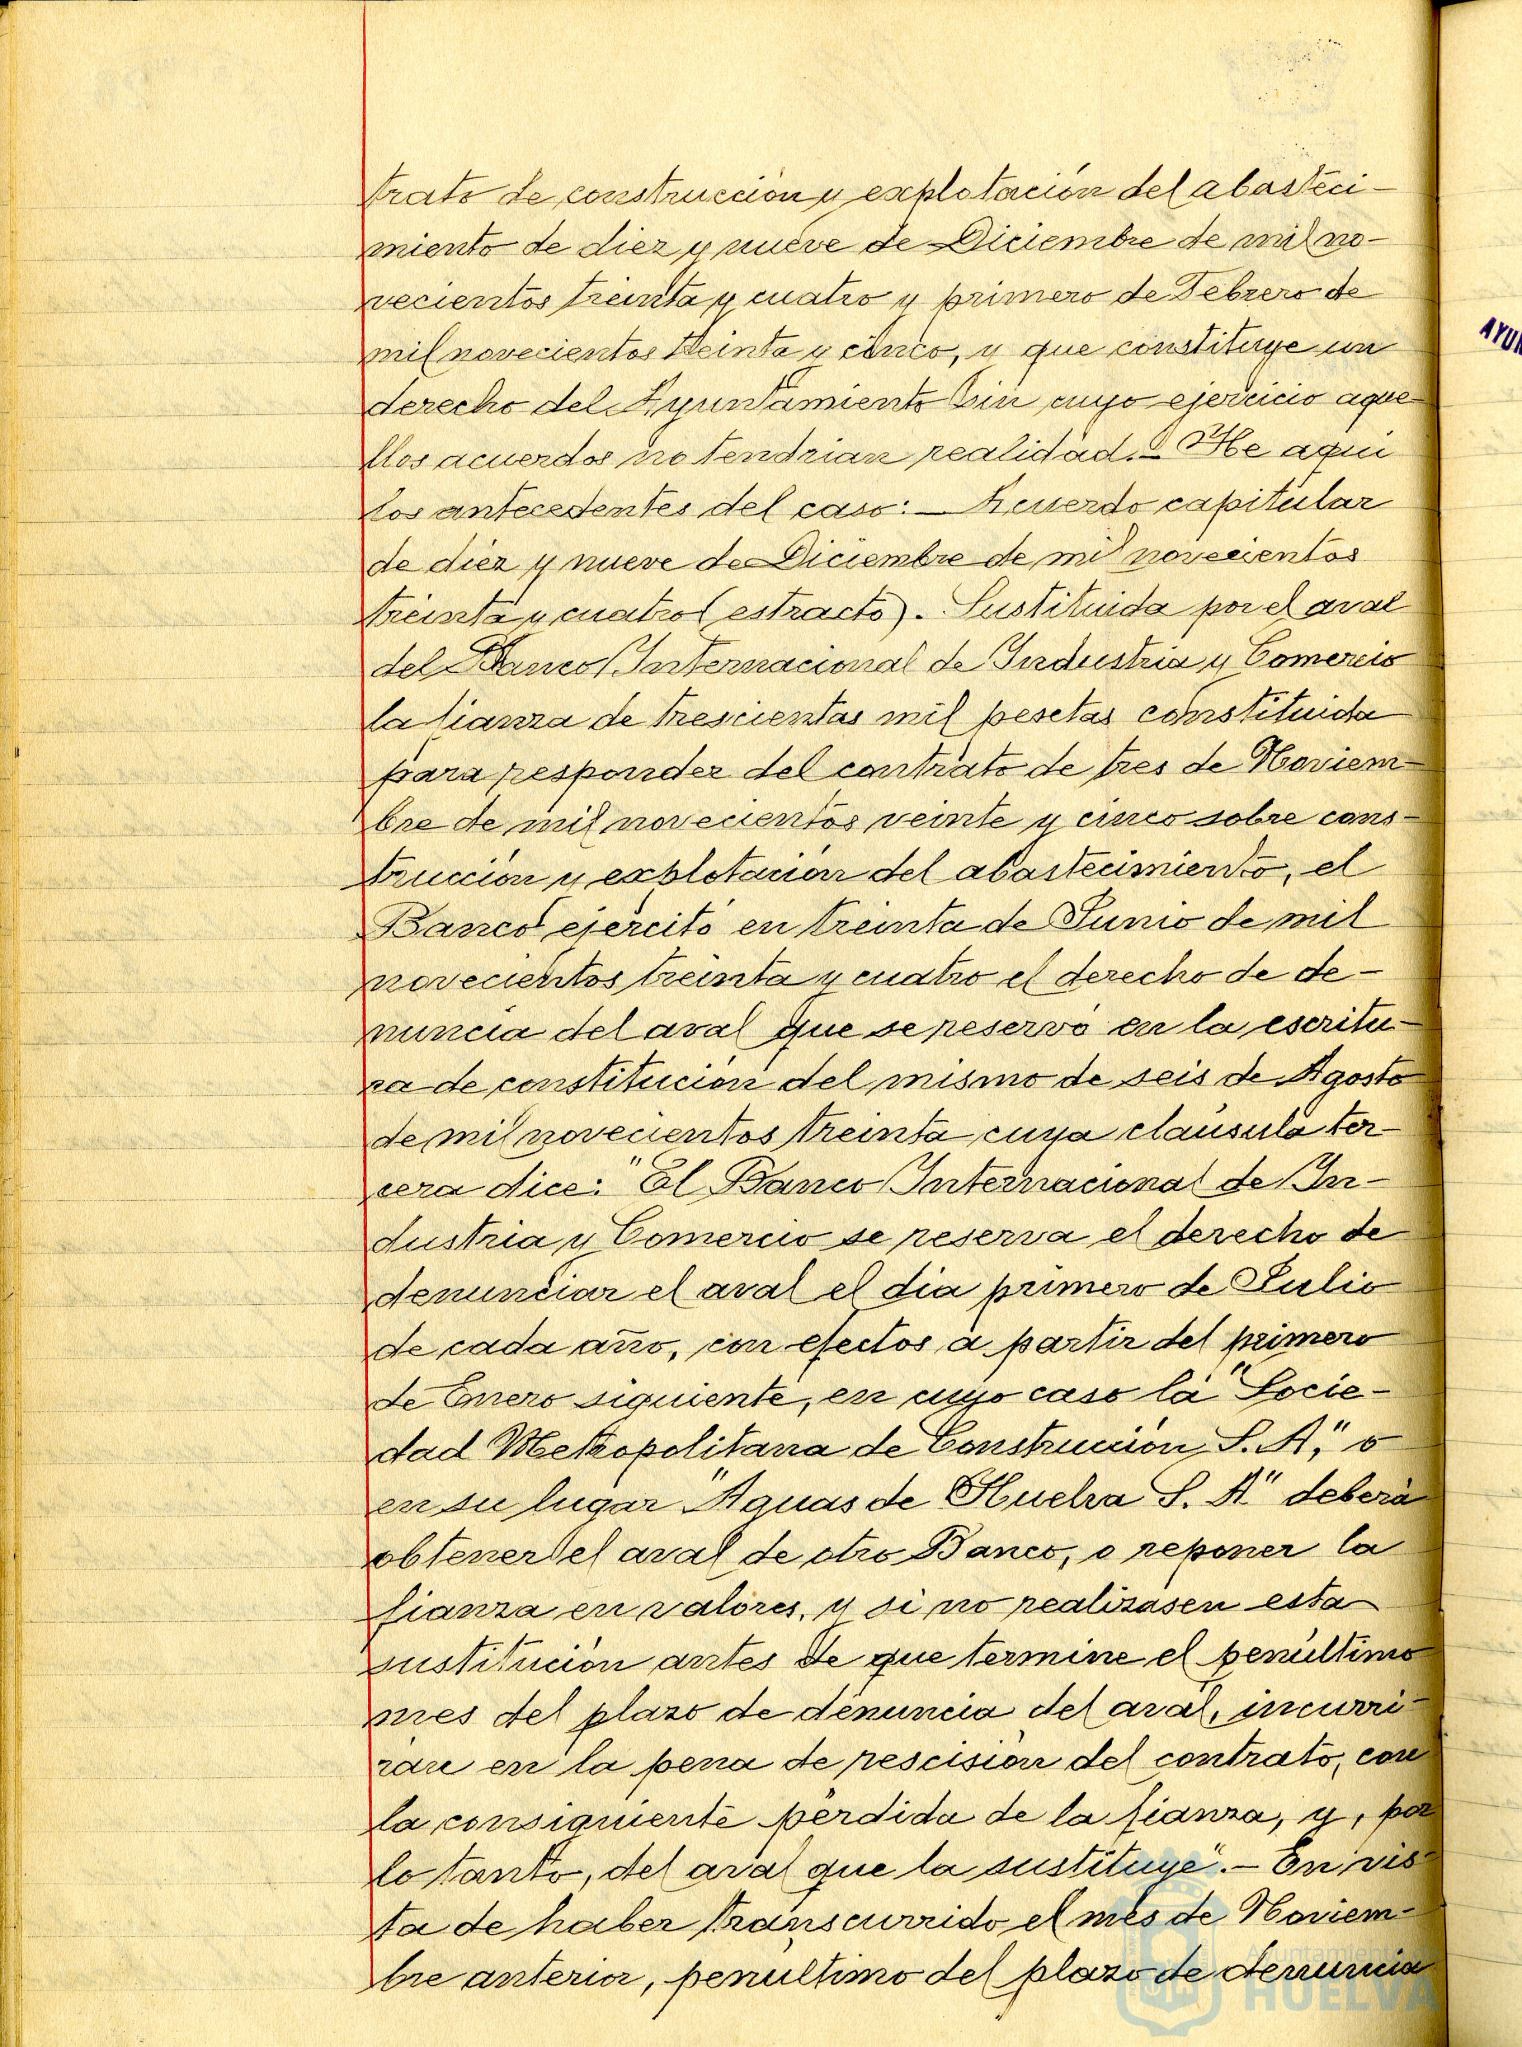 trato de construcción y explotación del abasteci-
miento de diez y nueve de Diciembre de mil no-
vecientos treinta y cuatro y primero de Febrero de
mil novecientos treinta y cinco, y que constituye un
derecho del Ayuntamiento sin cuyo ejercicio aque-
llos acuerdos no tendrian realidad.- He aqui
los antecedentes del caso:- Acuerdo capitular
de diez y nueve de Diciembre de mil novecientos
treinta y cuatro (estracto). Sustituida por el aval
del Banco Internacional de Industria y Comercio
la fianza de trescientas mil pesetas constituida
para responder del contrato de tres de Noviem-
bre de mil novecientos veinte y cinco sobre cons-
trucción y explotación del abastecimiento, el
Banco ejercitó en treinta de Junio de mil
novecientos treinta y cuatro el derecho de de-
nuncia del aval que se reservó en la escritu-
ra de constitución del mismo de seis de Agosto
de mil novecientos treinta cuya cláusula ter-
cera dice: "El Banco Internacional de In-
dustria y Comercio se reserva el derecho de
denunciar el aval el dia primero de Julio
de cada año, con efectos a partir del primero
de Enero siguiente, en cuyo caso la "Socie-
dad Metropolitana de Construcción S. A," o
en su lugar "Aguas de Huelva S. A" deberá
obtener el aval de otro Banco, o reponer la
fianza en valores, y si no realizasen esta
sustitución antes de que termine el penúltimo
mes del plazo de denuncia del aval, incurri-
rán en la pena de rescisión del contrato, con
la consiguiente pérdida de la fianza, y, por
lo tanto, del aval que la sustituye".- En vis-
ta de haber transcurrido el mes de Noviem-
bre anterior, penultimo del plazo de denuncia
Ayuntamiento de
HUELVA
AYUN